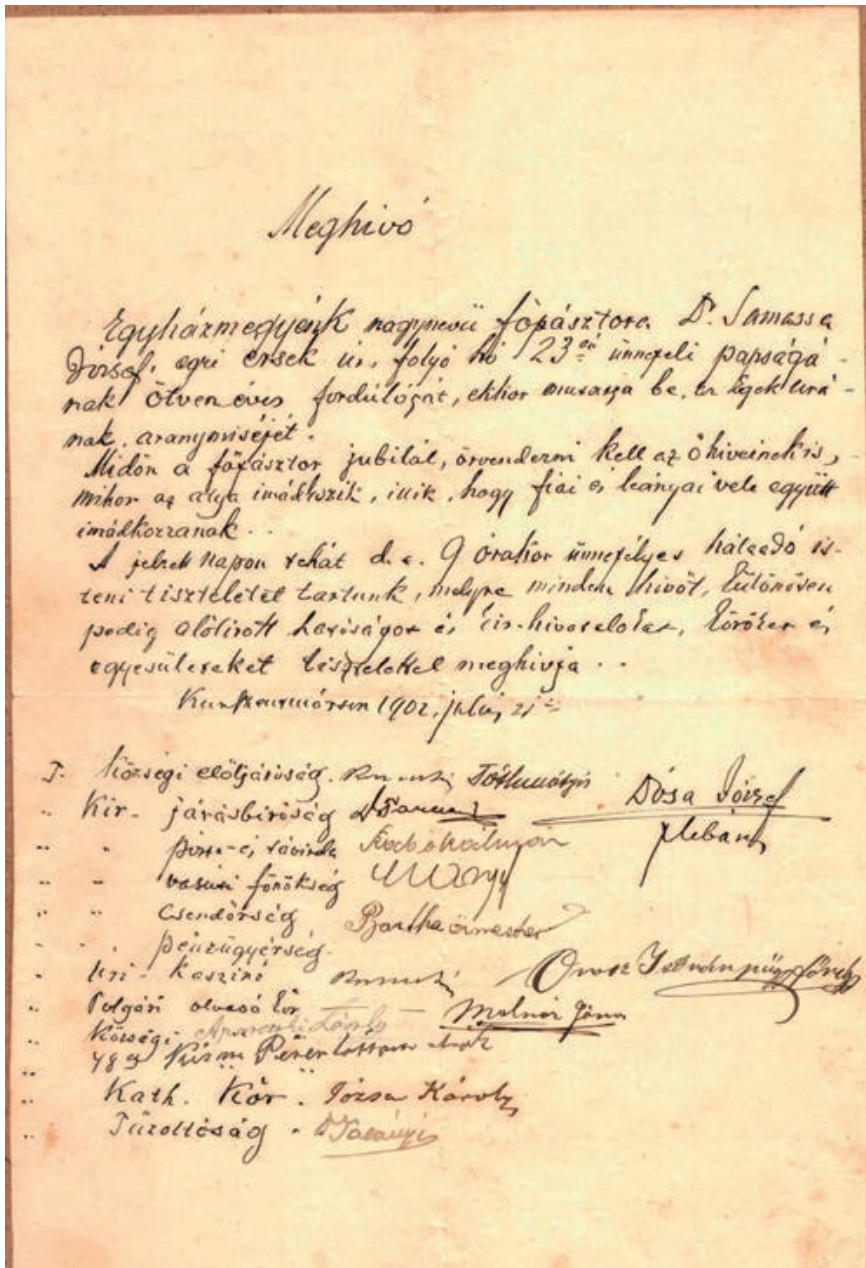 Meghivó
Egyházmegyénk nagynevü főpásztora Dr. Samassa
József, egri érsek úr, folyó hó 23án ünnepeli papságá-
nak ötven éves fordulóját, ekkor mutatja be, az Égek Urá-
nak, aranymiséjét.
Midőn a főpásztor jubilál, örvendezni kell az ő hiveinek is,
mikor az atya imádkozik, illik, hogy fiai és leányai vele együtt
imádkozzanak . .
A jelzett napon tehát d. e. 9 órakor ünnepélyes hálaadó is-
teni tiszteletet tartunk, melyre minden hivőt, különösen
pedig alólirott hatóságok és hivatalokat, köröket és
egyesületeket tisztelettel meghivja . .
Kunszentmárton 1902. juli, 21
T. községi előljáróság.
Dósa József
plebános
" Kir. járásbiróság
" " posta- és távirda Szabó Kálmán
" " vasuti főnökség
" " Csendőrség Bartha őrmester
" " pénzügyőrség.
" Uri-Kaszinó
Orosz István
" Polgári olvasó kör Molnár János
" Községi
" 48as Kör
" Kath. Kör. Józsa Károly
" Tüzoltóság .